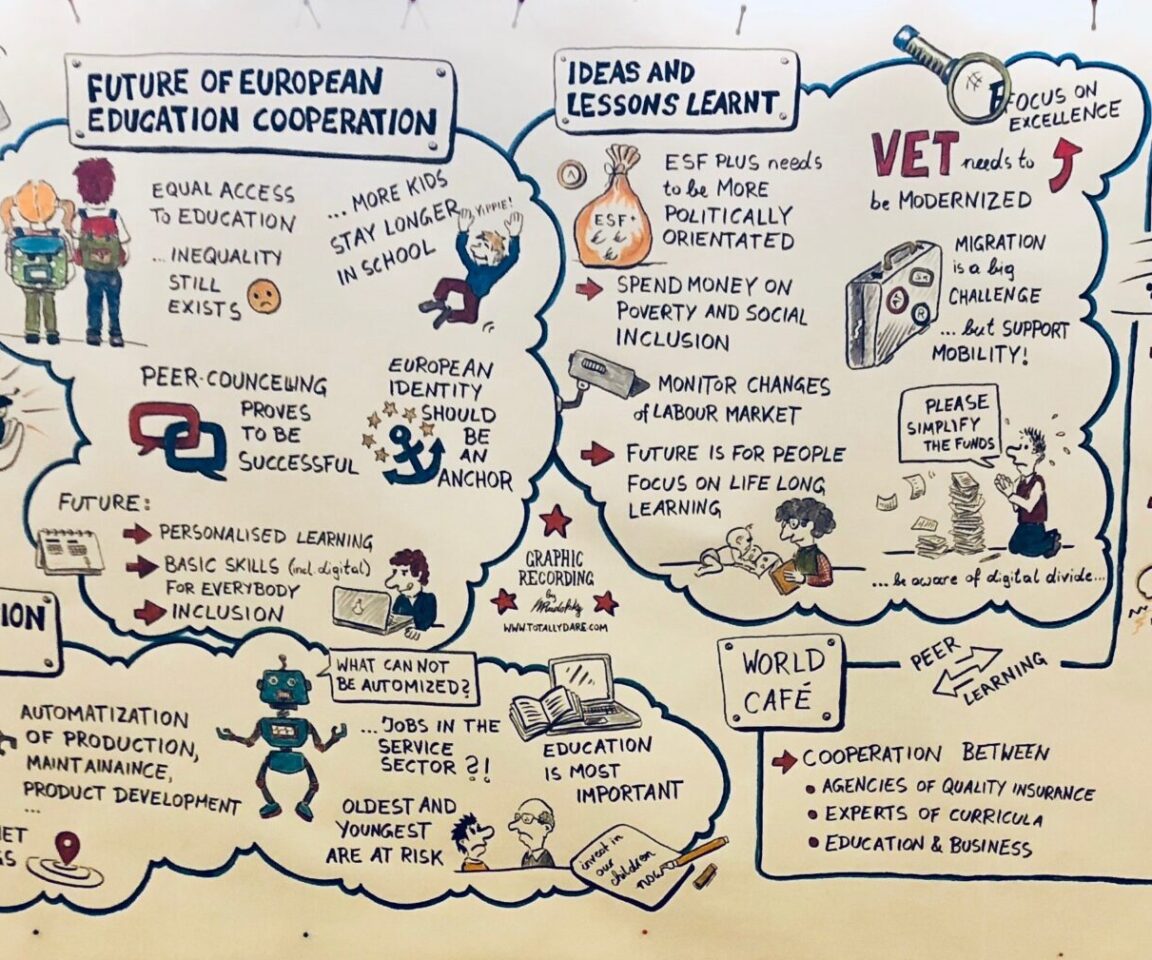 FUTURE OF EUROPEAN
EDUCATION COOPERATION
EQUAL ACCESS
TO EDUCATION
... INEQUALITY
STILL
EXISTS
... MORE KIDS
STAY LONGER
IN SCHOOL
YIPPIE!
PEER-COUNCELLING
PROVES
TO BE
SUCCESSFUL
EUROPEAN
IDENTITY
SHOULD
BE
AN
ANCHOR
FUTURE:
PERSONALISED LEARNING
BASIC SKILLS (incl. digital)
FOR EVERYBODY
INCLUSION
GRAPHIC
RECORDING
by
WWW.TOTALLYDARE.COM
IDEAS AND
LESSONS LEARNT
ESF+
ESF PLUS needs
to be MORE
POLITICALLY
ORIENTATED
SPEND MONEY ON
POVERTY AND SOCIAL
INCLUSION
MONITOR CHANGES
of LABOUR MARKET
FUTURE IS FOR PEOPLE
FOCUS ON LIFE LONG
LEARNING
FOCUS ON
EXCELLENCE
VET needs to
be MODERNIZED
MIGRATION
is a big
CHALLENGE
... but SUPPORT
MOBILITY!
PLEASE
SIMPLIFY
THE FUNDS
... be aware of digital divide...
ION
AUTOMATIZATION
OF PRODUCTION,
MAINTAINAINCE,
PRODUCT DEVELOPMENT
...
WHAT CAN NOT
BE AUTOMIZED?
... JOBS IN THE
SERVICE
SECTOR ?!
OLDEST AND
YOUNGEST
ARE AT RISK
EDUCATION
IS MOST
IMPORTANT
invest in
our
children
now
WORLD
CAFÉ
PEER
LEARNING
COOPERATION BETWEEN
• AGENCIES OF QUALITY INSURANCE
• EXPERTS OF CURRICULA
• EDUCATION & BUSINESS